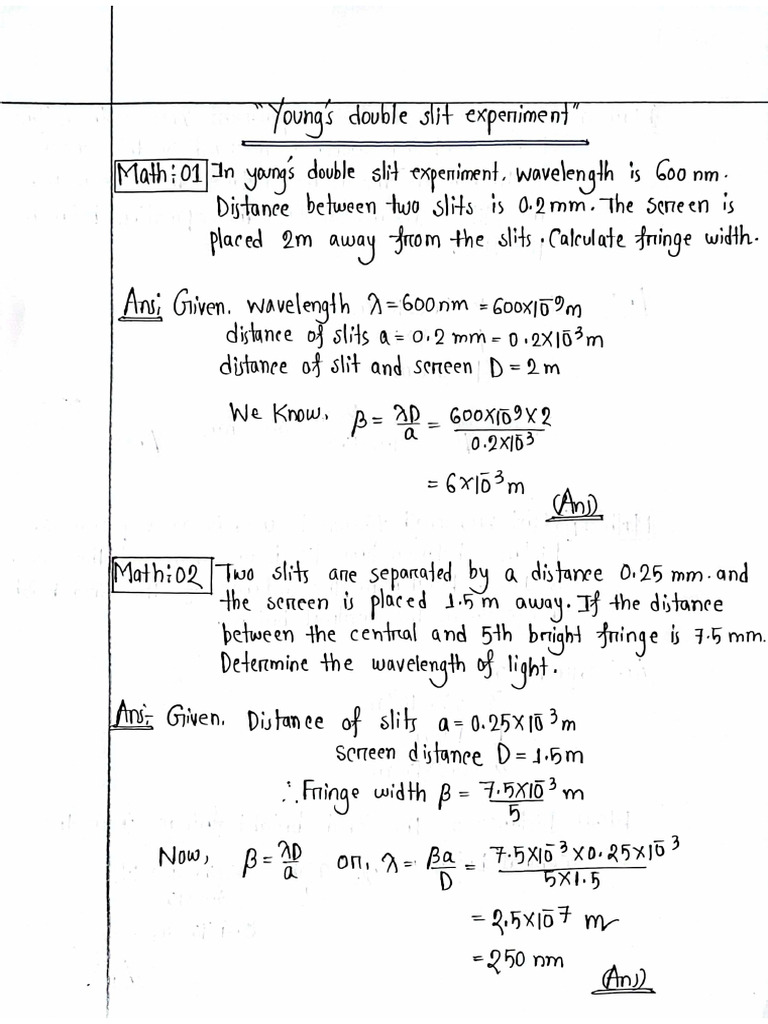 "Young's double slit experiment"
Math:01 In young's double slit experiment, wavelength is 600 nm.
Distance between two slits is 0.2 mm. The screen is
placed 2m away from the slits. Calculate fringe width.
Ans: Given, wavelength λ = 600 nm = 600×10⁻⁹ m
distance of slits a = 0.2 mm = 0.2×10⁻³ m
distance of slit and screen D = 2 m
We Know, β = λD/a = 600×10⁻⁹×2/0.2×10⁻³
= 6×10⁻³ m
(Ans)
Math:02 Two slits are separated by a distance 0.25 mm. and
the screen is placed 1.5 m away. If the distance
between the central and 5th bright fringe is 7.5 mm.
Determine the wavelength of light.
Ans:- Given, Distance of slits a = 0.25×10⁻³ m
screen distance D = 1.5m
∴ Fringe width β = 7.5×10⁻³/5 m
Now, β = λD/a or, λ = βa/D = 7.5×10⁻³×0.25×10⁻³/5×1.5
= 2.5×10⁻⁷ m
= 250 nm
(Ans)